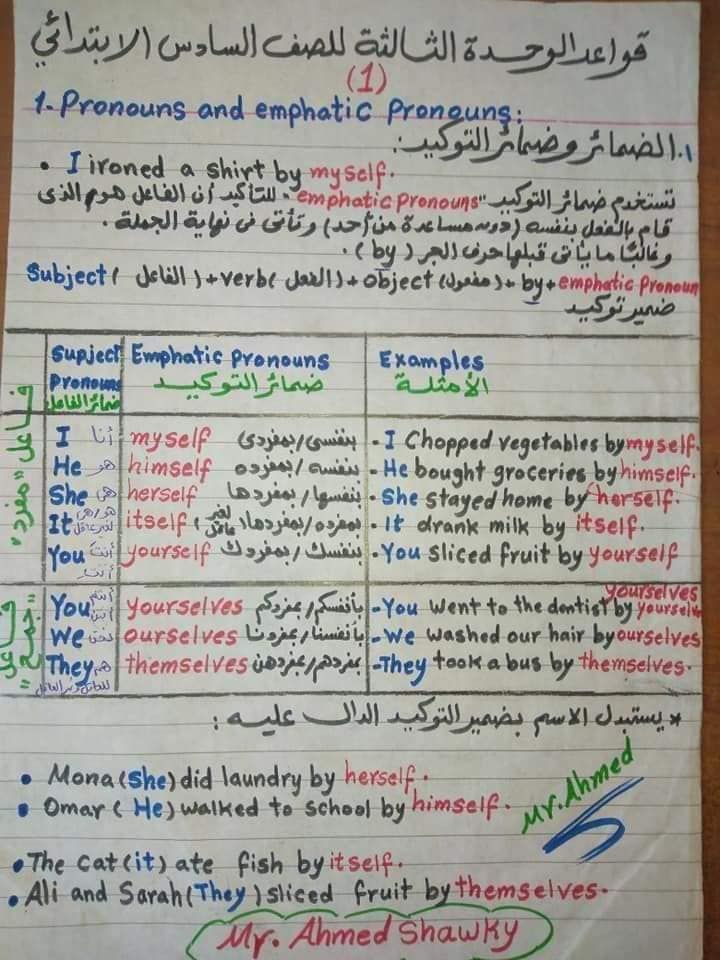 قواعد الوحدة الثالثة للصف السادس الابتدائي
(1)
1. Pronouns and emphatic Pronouns:
١. الضمائر وضمائر التوكيد:
• I ironed a shirt by myself.
تستخدم ضمائر التوكيد "emphatic pronouns" للتأكيد أن الفاعل هو من الذى
قام بالفعل بنفسه (دون مساعدة من أحد) وتأتى فى نهاية الجملة.
وغالبًا ما يأتى قبلها حرف الجر (by).
Subject (الفاعل) + verb (الفعل) + object (مفعول) + by + emphatic Pronoun
ضمير توكيد
Supject Pronouns ضمائر الفاعل | Emphatic Pronouns ضمائر التوكيد | Examples الأمثلة
فاعل "مفرد"
I أنا | myself بنفسى/بمفردى | - I Chopped vegetables by myself.
He هو | himself بنفسه/بمفرده | - He bought groceries by himself.
She هى | herself بنفسها/بمفردها | - She stayed home by herself.
It هو/هى لغير عاقل | itself بمفرده/بمفردها (لغير عاقل) | - It drank milk by itself.
You أنتَ أنتِ | yourself بنفسك/بمفردك | - You sliced fruit by yourself
فاعل "جمع"
You أنتم | yourselves بأنفسكم/بمفردكم | - You went to the dentist by yourselves yourselves
We نحن | ourselves بأنفسنا/بمفردنا | - We washed our hair by ourselves
They هم | themselves بمفردهم/بمفردهن | - They took a bus by themselves.
* يستبدل الاسم بضمير التوكيد الدال عليه:
• Mona (She) did laundry by herself.
• Omar (He) walked to school by himself.
Mr. Ahmed
• The cat (it) ate fish by itself.
• Ali and Sarah (They) sliced fruit by themselves.
Mr. Ahmed Shawky